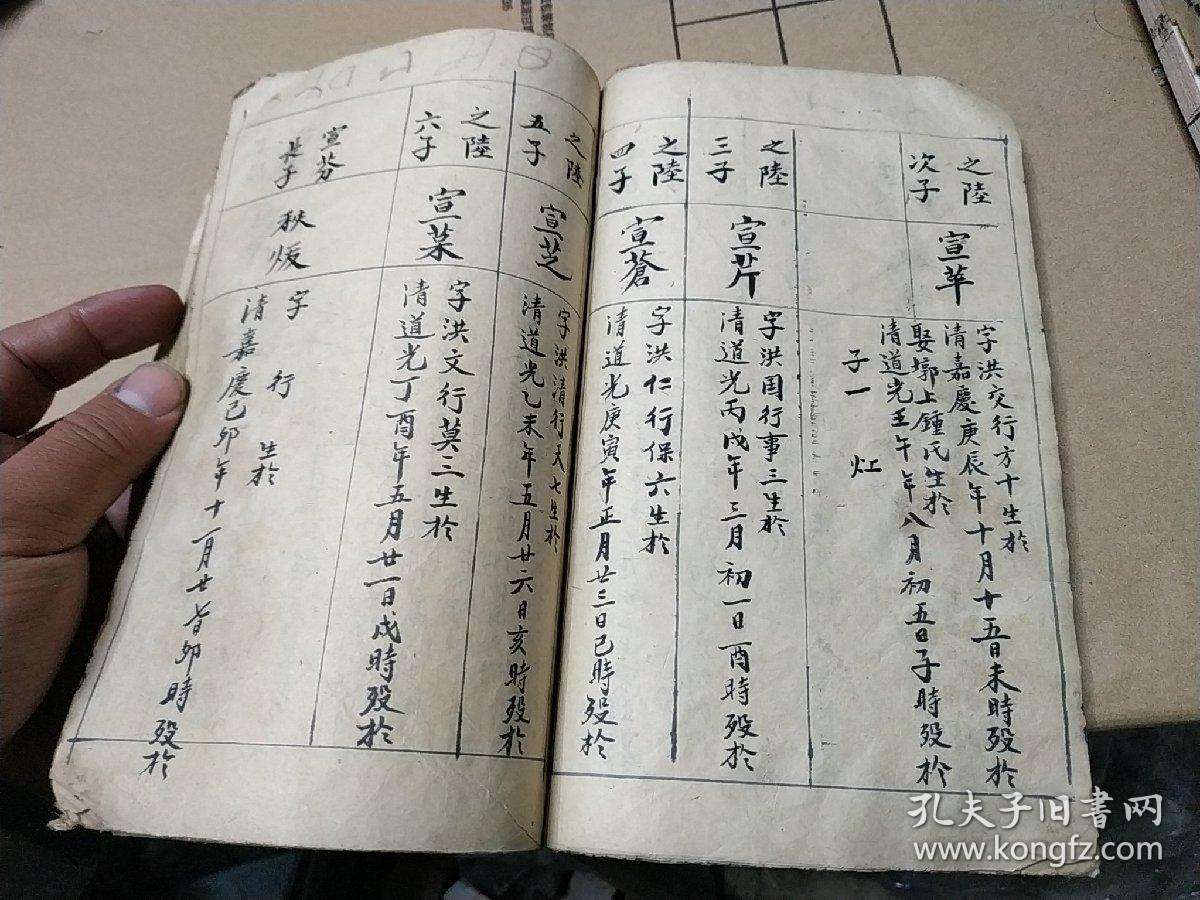 之陸
次子
宣苹
字洪交行方十生於
清嘉慶庚辰年十月十五日未時殁於
娶塘上鍾氏生於
清道光壬午年八月初五日子時殁於
子一 灴
之陸
三子
宣芹
字洪国行事三生於
清道光丙戌年三月初一日酉時殁於
之陸
四子
宣蒼
字洪仁行保六生於
清道光庚寅年正月廿三日巳時殁於
之陸
五子
宣芝
字洪清行天七生於
清道光乙未年五月廿六日亥時殁於
之陸
六子
宣菜
字洪文行莫三生於
清道光丁酉年五月廿一日戌時殁於
宣芬
長子
秋煖
字 行 生於
清嘉慶己卯年十一月廿 卯時殁於
孔夫子旧书网
www.kongfz.com